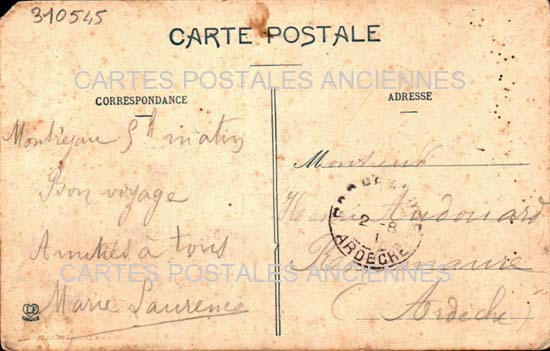 310545
CARTE POSTALE
CARTES POSTALES ANCIENNES
CORRESPONDANCE
ADRESSE
Montréjau 5h matin
Bon voyage
Amitiés à tous
Marie Laurence
Monsieur
Audouard
Ardèche
2-8
ARDECHE
CARTES POSTALES ANCIENNES